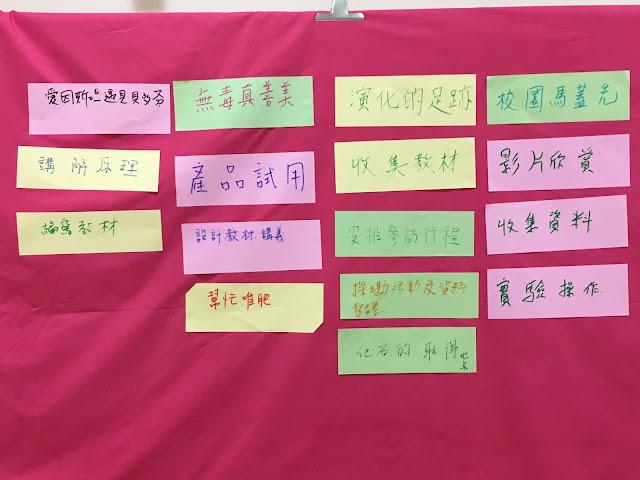 愛因斯坦遇見貝多芬
講解原理
編寫教材
無毒真善美
產品試用
設計教材.講義
幫忙堆肥
演化的足跡
收集教材
安排參訪行程
探勘活動及資料
整理
化石的取得地點
校園馬蓋先
影片欣賞
收集資料
實驗操作.